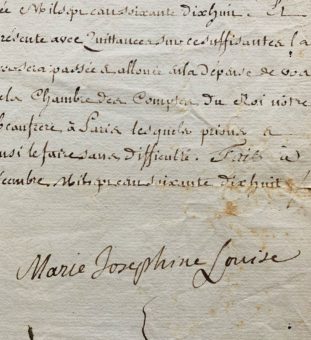 ée Mil sept cent soixante dix huit. Et
présente avec Quittances sur ce suffisantes la
sera passée & allouée à la dépense de vos
la Chambre des Comptes du Roi notre
beaufrere, à Paris lesquels prions
ainsi le faire sans difficulté. Fait à
Décembre Mil sept cent soixante dix huit
Marie Josephine Louise